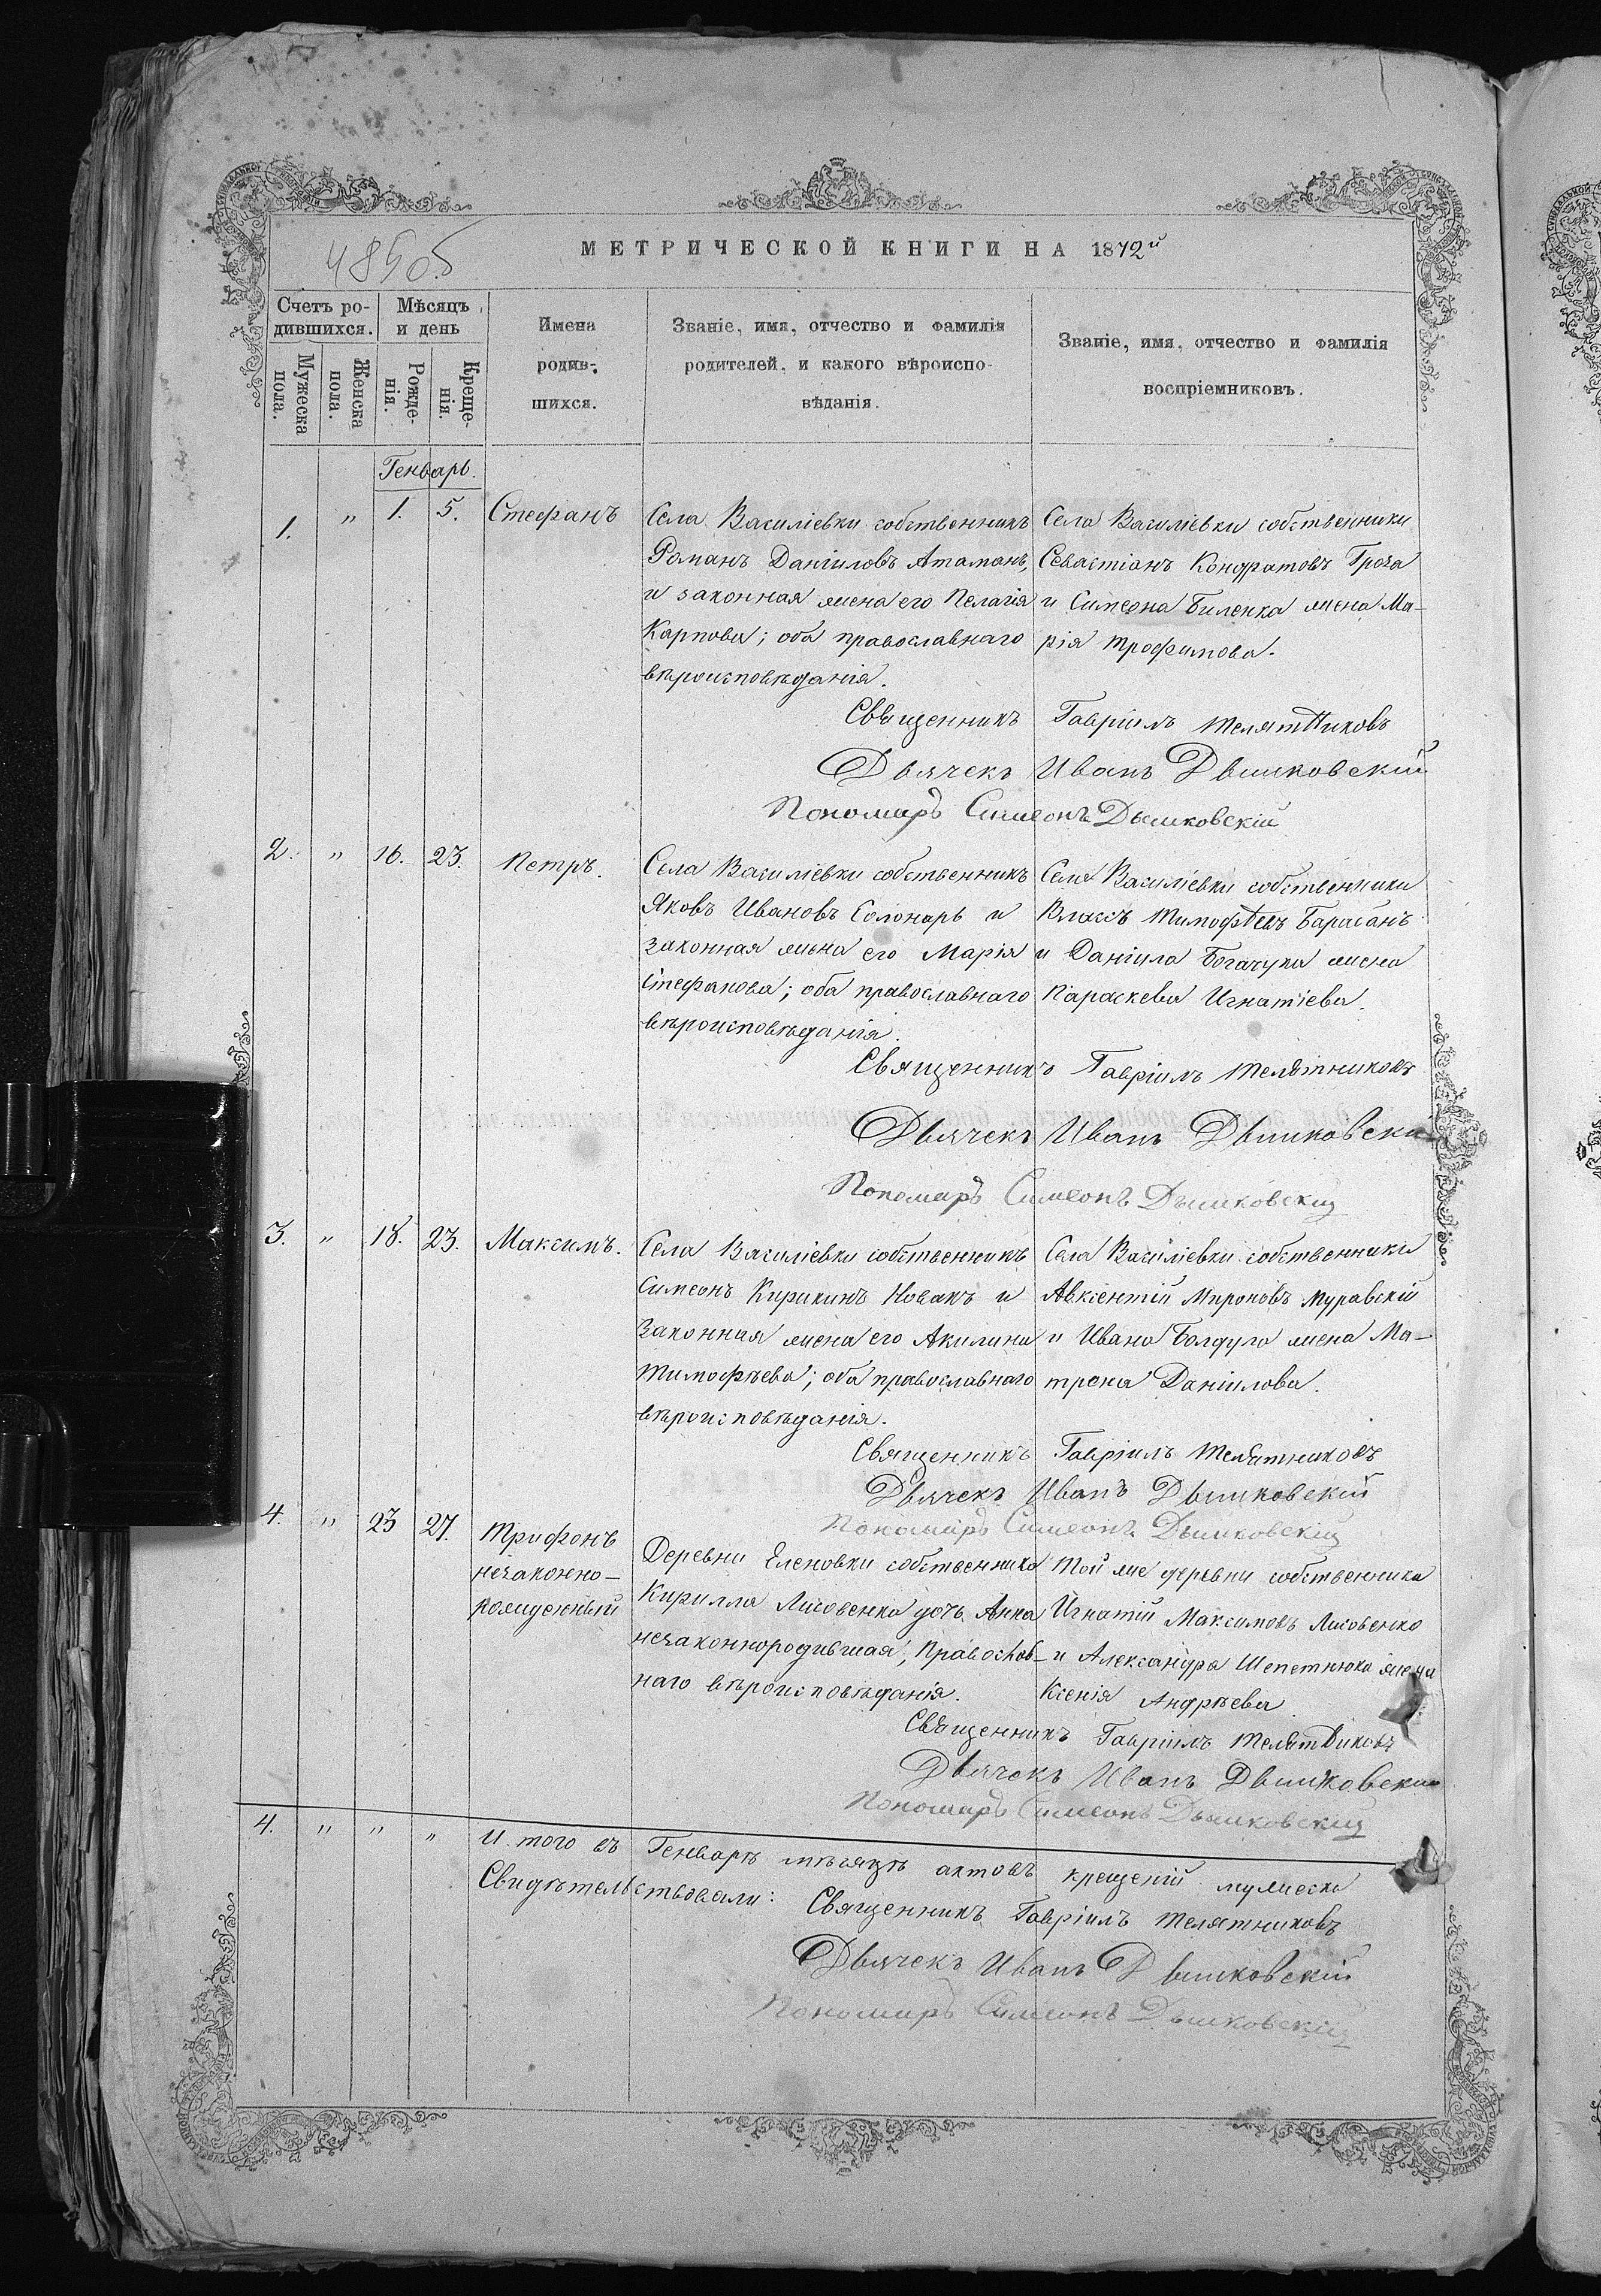 48505
МЕТРИЧЕСКОЙ КНИГИ НА 1872й
Счетъ ро-
дившихся.
Мѣсяцъ
и день
Мужеска
пола.
Женска
пола.
Рожде-
нія.
Креще-
нія.
Имена
родив-
шихся.
Званіе, имя, отчество и фамилія
родителей, и какого вѣроиспо-
вѣданія.
Званіе, имя, отчество и фамилія
воспріемниковъ.
Генварь.
1. " 1. 5. Стефанъ
Села Василіевки собственникъ
Романъ Даніиловъ Атаманъ,
и законная жена его Пелагія
Карпова; оба православнаго
вѣроисповѣданія.
Села Василіевки собственники
Севастіанъ Кондратовъ
и Симеона Биленка жена Ма-
рія Трофимова.
Священникъ Гавріилъ Телятниковъ
Дьячекъ Иванъ Дышковскій
Пономарь Симеонъ Дышковскій
2. " 16. 23. Петръ.
Села Василіевки собственникъ
Яковъ Ивановъ Солонарь и
законная жена его Марія
Стефанова; оба православнаго
вѣроисповѣданія.
Села Василіевки собственники
Власъ Тимофѣевъ
и Даніила Богачука жена
Параскева Игнатіева.
Священникъ Гавріилъ Телятниковъ
Дьячекъ Иванъ Дышковскій
Пономарь Симеонъ Дышковскій
3. " 18. 23. Максимъ.
Села Василіевки собственникъ
Симеонъ Кирикинъ Новакъ и
законная жена его Акилина
Тимофѣева; оба православнаго
вѣроисповѣданія.
Села Василіевки собственники
Авксентій Мироновъ Муравскій
и Ивана жена Ма-
трона Даніилова.
Священникъ Гавріилъ Телятниковъ
Дьячекъ Иванъ Дышковскій
Пономарь Симеонъ Дышковскій
4. " 23 27. Трифонъ
незаконно-
рожденный
Деревни Еленовки собственника
Кирилла Лисовенка дочь Анна
незаконнородившая, Православ-
наго вѣроисповѣданія.
Той же деревни собственники
Игнатій Максимовъ Лисовенко
и Александра Шепетнюка жена
Ксенія Андрѣева.
Священникъ Гавріилъ Телятниковъ
Дьячекъ Иванъ Дышковскій
Пономарь Симеонъ Дышковскій
4. " " " И того въ Генварѣ мѣсяцѣ актовъ крещеній мужеска
Свидѣтельствовали: Священникъ Гавріилъ Телятниковъ
Дьячекъ Иванъ Дышковскій
Пономарь Симеонъ Дышковскій